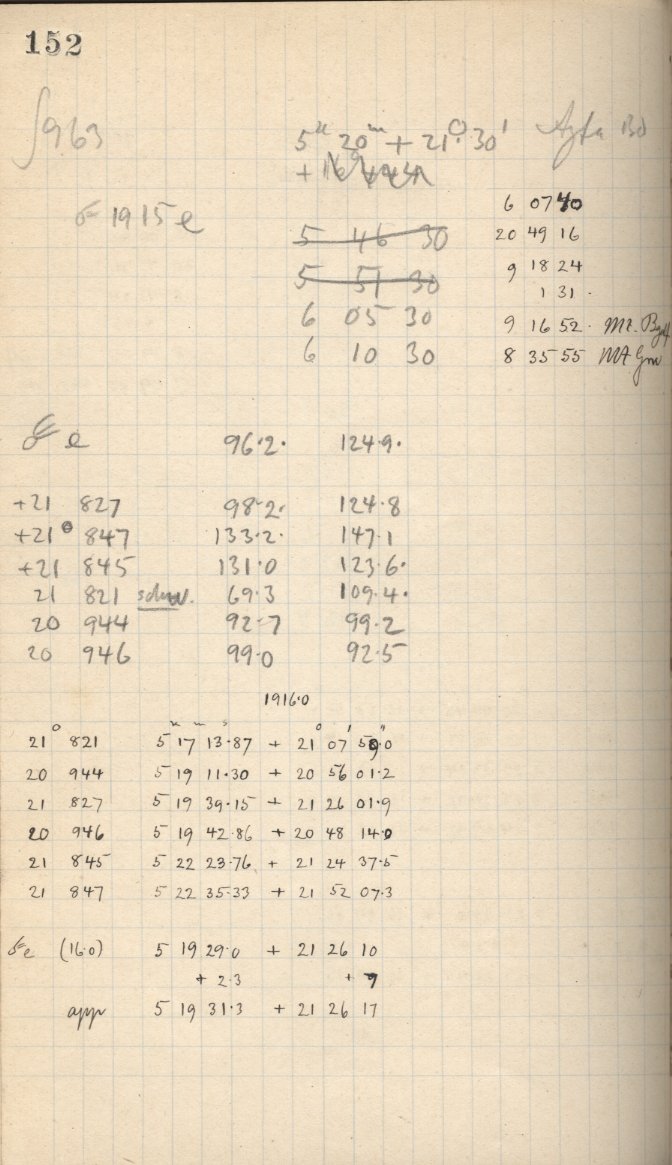 152
963
5ʰ 20ᵐ + 21°. 30' Agfa
1915 e
5 46 30
5 51 30
6 05 30
6 10 30
6 07 40
20 49 16
9 18 24
1 31 .
9 16 52. Mt.
8 35 55
e 96.2. 124.9.
+21 827 98.2. 124.8
+21° 847 133.2. 147.1
+21 845 131.0 123.6.
21 821 schw. 69.3 109.4.
20 944 92.7 99.2
20 946 99.0 92.5
1916.0
21° 821 5ʰ 17ᵐ 13ˢ.87 + 21° 07' 59".0
20 944 5 19 11.30 + 20 56 01.2
21 827 5 19 39.15 + 21 26 01.9
20 946 5 19 42.86 + 20 48 14.0
21 845 5 22 23.76 + 21 24 37.5
21 847 5 22 35.33 + 21 52 07.3
e (16.0) 5 19 29.0 + 21 26 10
+ 2.3 + 7
app 5 19 31.3 + 21 26 17